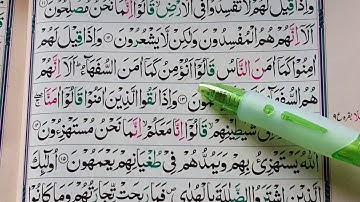 وَاِذَا قِيْلَ لَهُمْ لَا تُفْسِدُوْا فِي الْاَرْضِ ۙ قَالُوْۤا اِنَّمَا نَحْنُ مُصْلِحُوْنَ
اَلَاۤ اِنَّهُمْ هُمُ الْمُفْسِدُوْنَ وَلٰكِنْ لَّا يَشْعُرُوْنَ وَاِذَا قِيْلَ لَهُمْ
اٰمِنُوْا كَمَاۤ اٰمَنَ النَّاسُ قَالُوْۤا اَنُؤْمِنُ كَمَاۤ اٰمَنَ السُّفَهَآءُ ؕ اَلَاۤ اِنَّهُمْ
هُمُ السُّفَهَآءُ وَاِذَا لَقُوا الَّذِيْنَ اٰمَنُوْا قَالُوْۤا اٰمَنَّا
شَيٰطِيْنِهِمْ ۙ قَالُوْۤا اِنَّا مَعَكُمْ ۙ اِنَّمَا نَحْنُ مُسْتَهْزِءُوْنَ
اَللّٰهُ يَسْتَهْزِئُ بِهِمْ وَيَمُدُّهُمْ فِيْ طُغْيَانِهِمْ يَعْمَهُوْنَ ۝۱۵ اُولٰٓئِكَ
الَّذِيْنَ اشْتَرَوُا الضَّلٰلَةَ بِالْهُدٰى ۪ فَمَا رَبِحَتْ تِّجَارَتُهُمْ وَمَا كَانُوْا